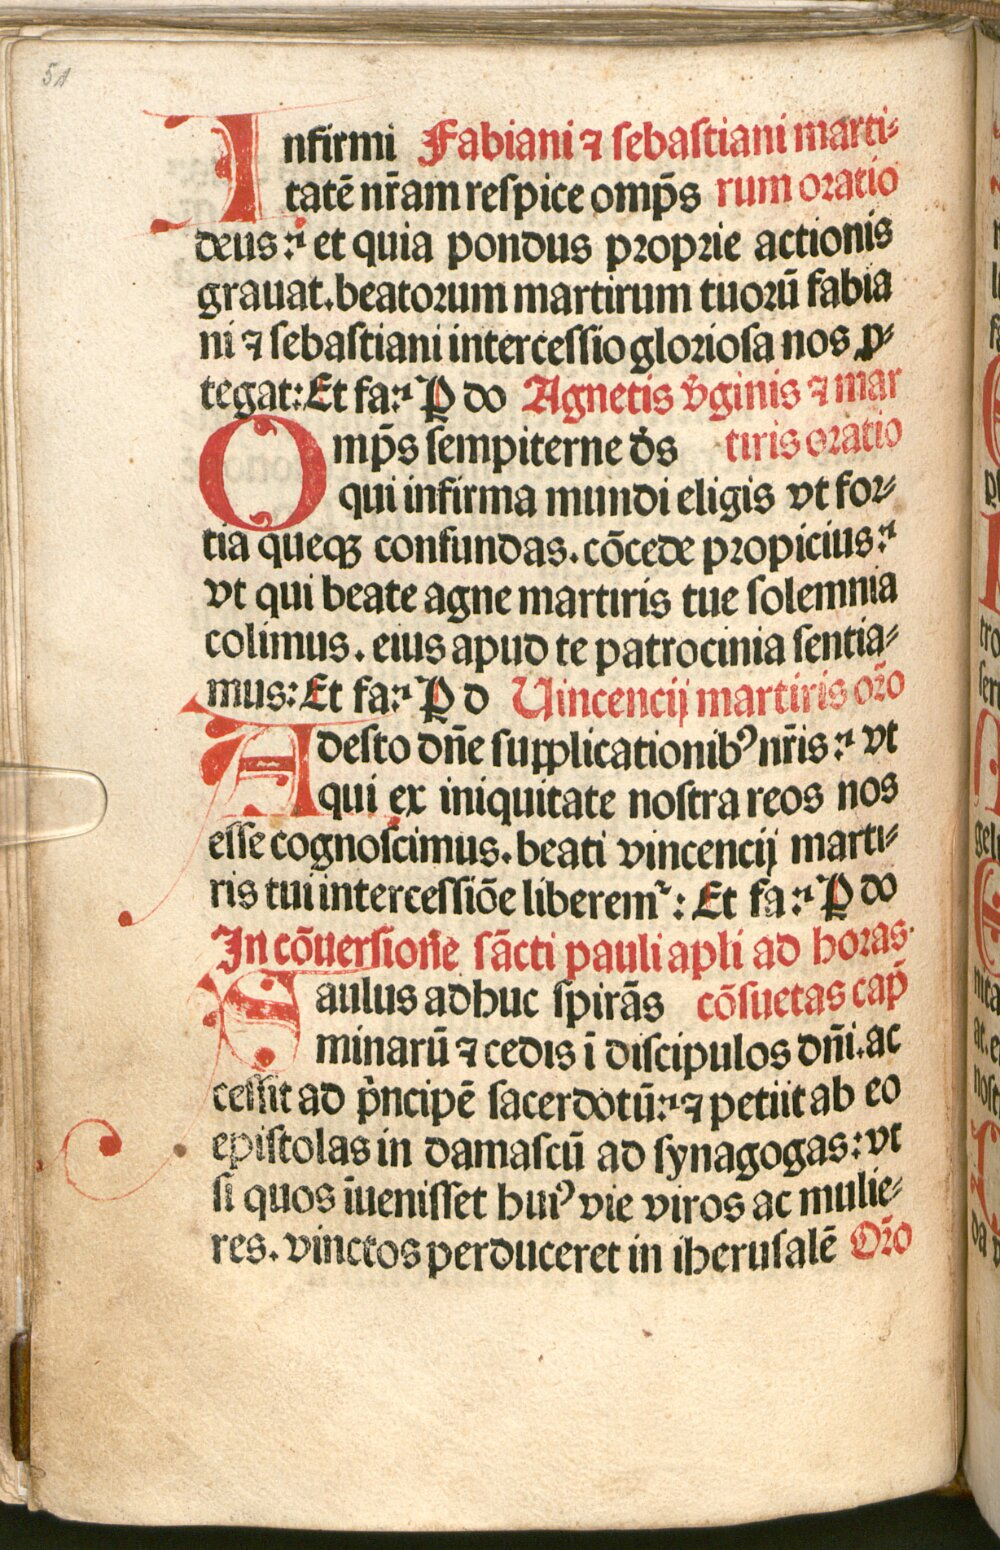 Infirmi Fabiani ⁊ sebastiani marti-
tatē nr̄am respice omp̄s rum oratio
deus: et quia pondus proprie actionis
grauat. beatorum martirum tuorū fabia
ni ⁊ sebastiani intercessio gloriosa nos ꝓ-
tegat: Et fa: P do Agnetis v̄ginis ⁊ mar
Omp̄s sempiterne ds̄ tiris oratio
qui infirma mundi eligis vt for-
tia queqꝫ confundas. cōcede propicius:
vt qui beate agne martiris tue solemnia
colimus. eius apud te patrocinia sentia-
mus: Et fa: P d Uincencij martiris or̄o
Adesto dn̄e supplicationibꝰ nr̄is: vt
qui ex iniquitate nostra reos nos
esse cognoscimus. beati vincencij marti-
ris tui intercessiōe liberemr̄: Et fa: P do
In cōuersione sācti pauli apli ad horas
Saulus adhuc spirās cōsuetas cap̄
minarū ⁊ cedis ī discipulos dn̄i. ac
cessit ad pr̄ncipē sacerdotū: ⁊ petiit ab eo
epistolas in damascū ad synagogas: vt
si quos īuenisset huiꝰ vie viros ac mulie-
res. vinctos perduceret in iherusalē Or̄o